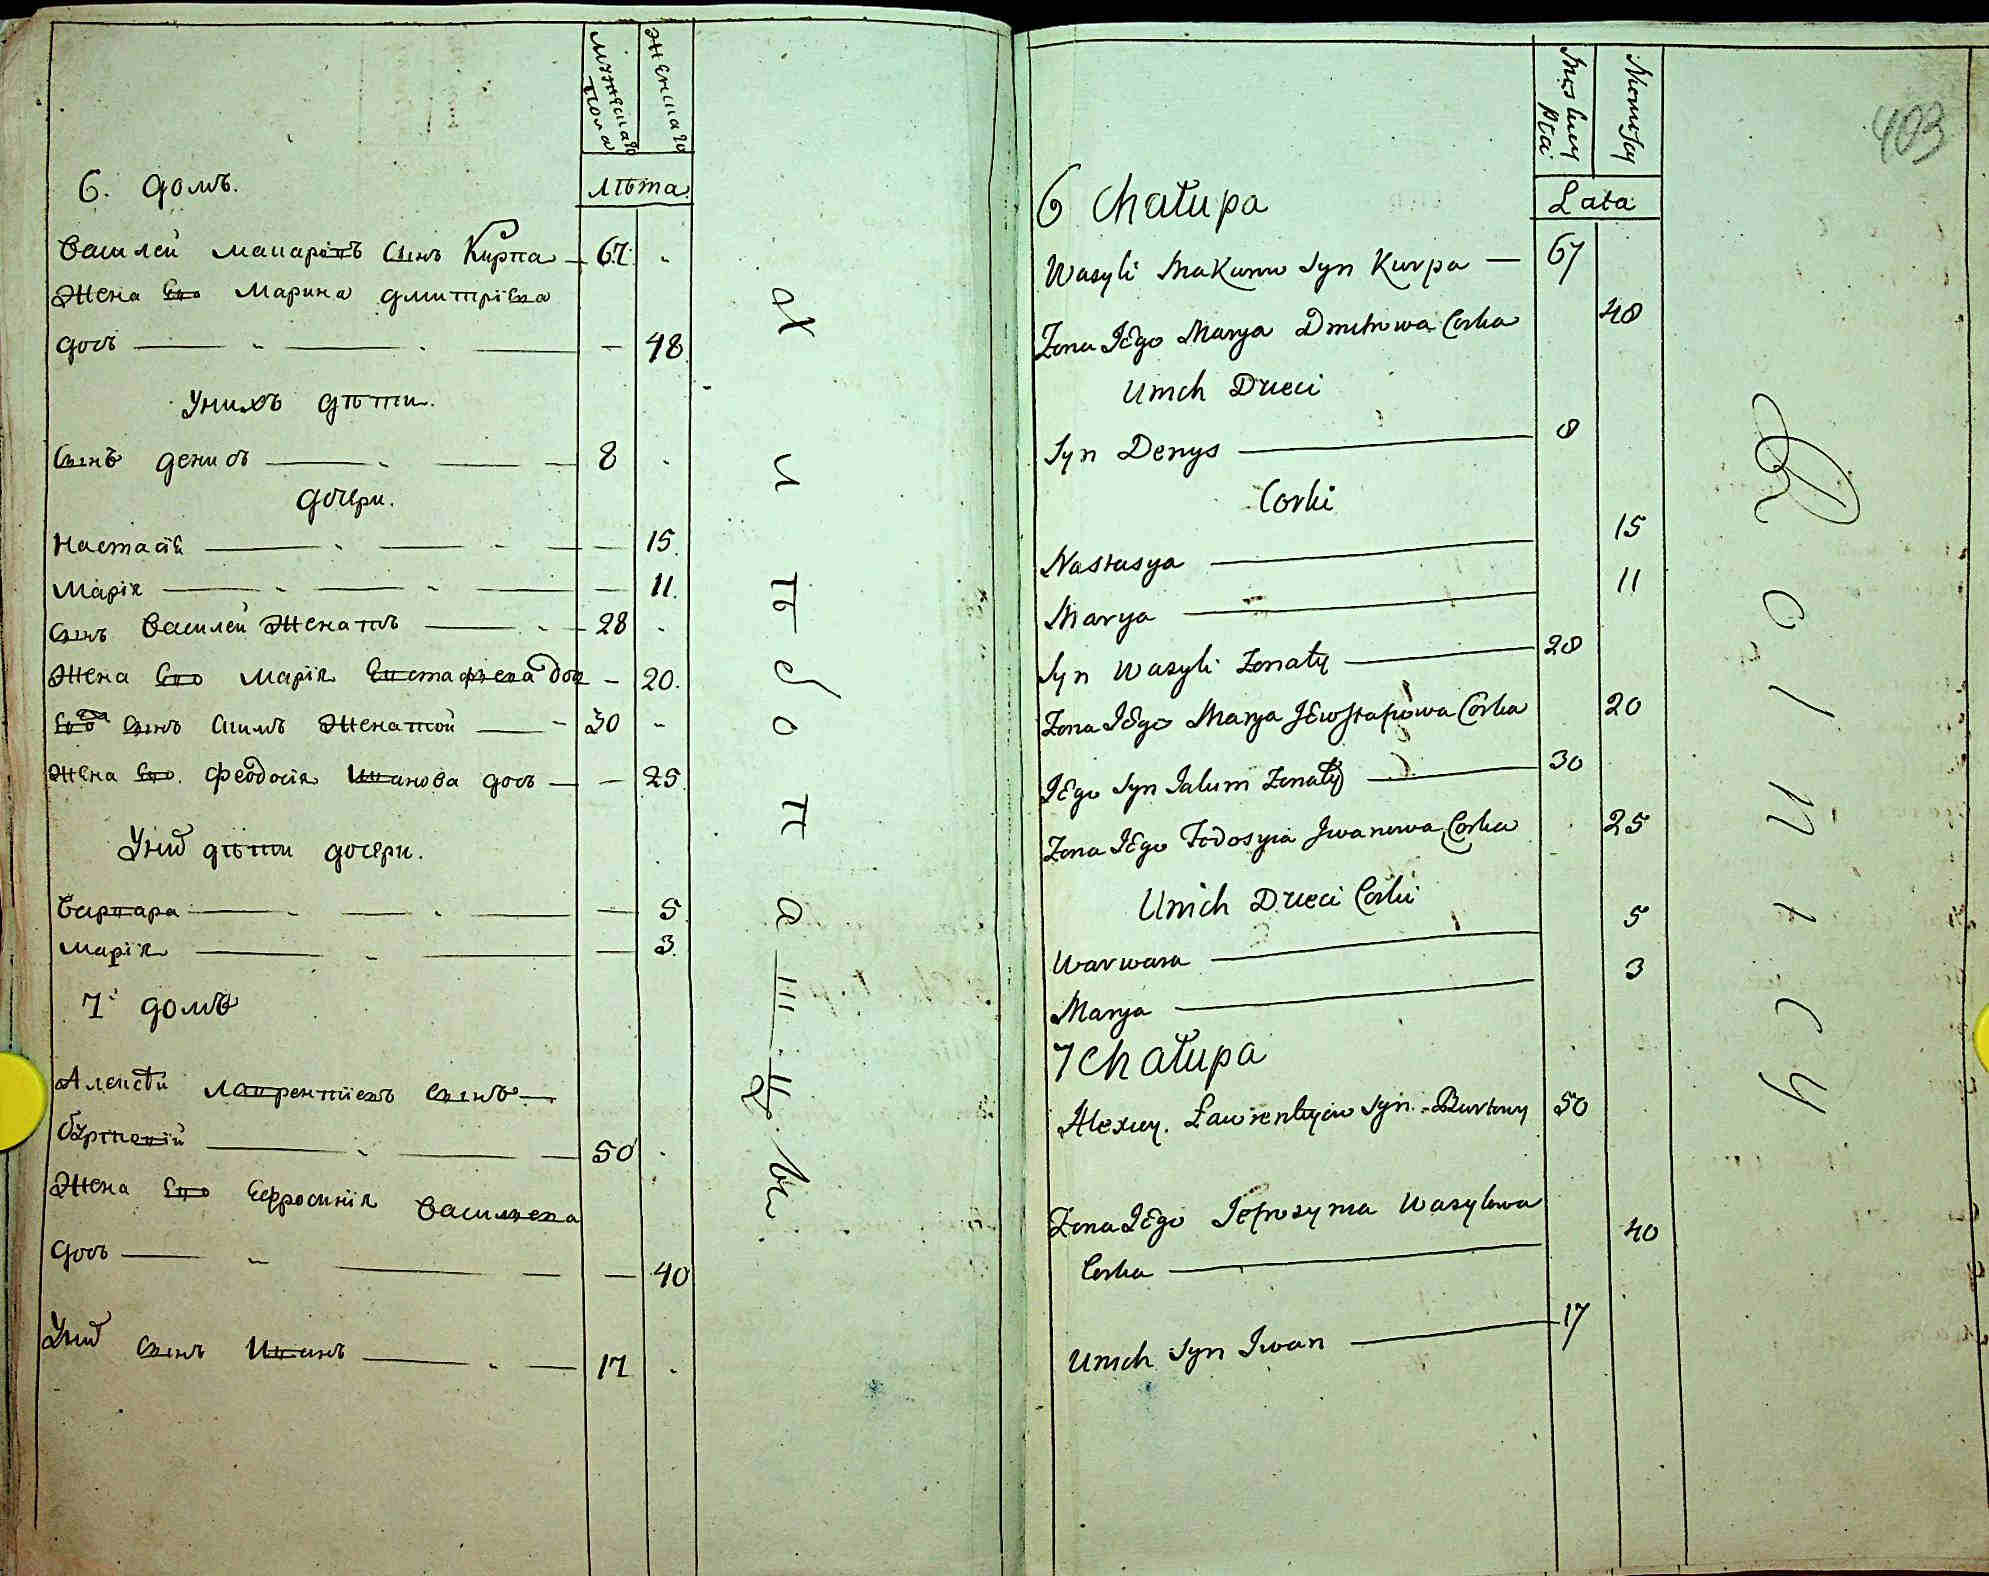 мужеска пола
женска го
лѣта
6. домъ.
Василей макаровъ сынъ Кирпа 67
Жена Его марина дмитрієва
дочь 48
Унихъ дѣти.
Сынъ денисъ 8
дочери.
настасія 15
марія 11
Сынъ василей женатъ 28
Жена Его марія Евстафьева доч 20
Его сынъ женатой 30
Жена Его феодосія Иванова дочь 25
Унихъ дѣти дочери.
варвара 5
марія 3
7 домъ
Алексѣй лаврентіевъ сынъ
буртовій 50
Жена Его Єфросинія васильева
дочь 40
Унихъ сынъ Иванъ 17
хлѣбопашцы
403
Męskiey Płci
Lata
6 Chałupa
Wasyli Makarow Syn Kurpa 67
Zona Jego Marya Dmitrowa Corka 48
Unich Dzieci
Syn Denys 8
Corki
Nastasya 15
Marya 11
Syn Wasyli Zonaty 28
Zona Jego Marya Jewstafiowa Corka 20
Jego Syn Zonaty 30
Zona Jego Fedosyia Iwanowa Corka 25
Unich Dzieci Corki
Warwara 5
Marya 3
7 Chałupa
Alexiey. Ławrentyiow Syn. Burtowy 50
Zona Jego Jefrosynia Wasylowa
Corka 40
Unich Syn Iwan 17
Rolnicy